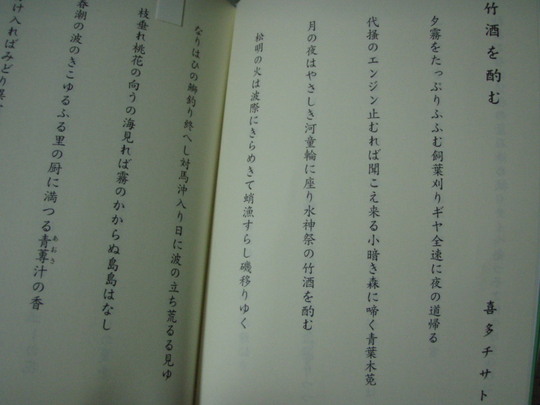 竹酒を酌む
喜多チサト
夕霧をたっぷりふふむ飼葉刈りギヤ全速に夜の道帰る
代掻のエンジン止むれば聞こえ来る小暗き森に啼く青葉木菟
月の夜はやさしき河童輪に座り水神祭の竹酒を酌む
松明の火は波際にきらめきて蛸漁すらし磯移りゆく
なりはひの鰤釣り終へし対馬沖入り日に波の立ち荒るる見ゆ
枝垂れ桃花の向うの海見れば霧のかからぬ島島はなし
春潮の波のきこゆるふる里の厨に満つる青蓴汁の香
あおさ
け入ればみどり